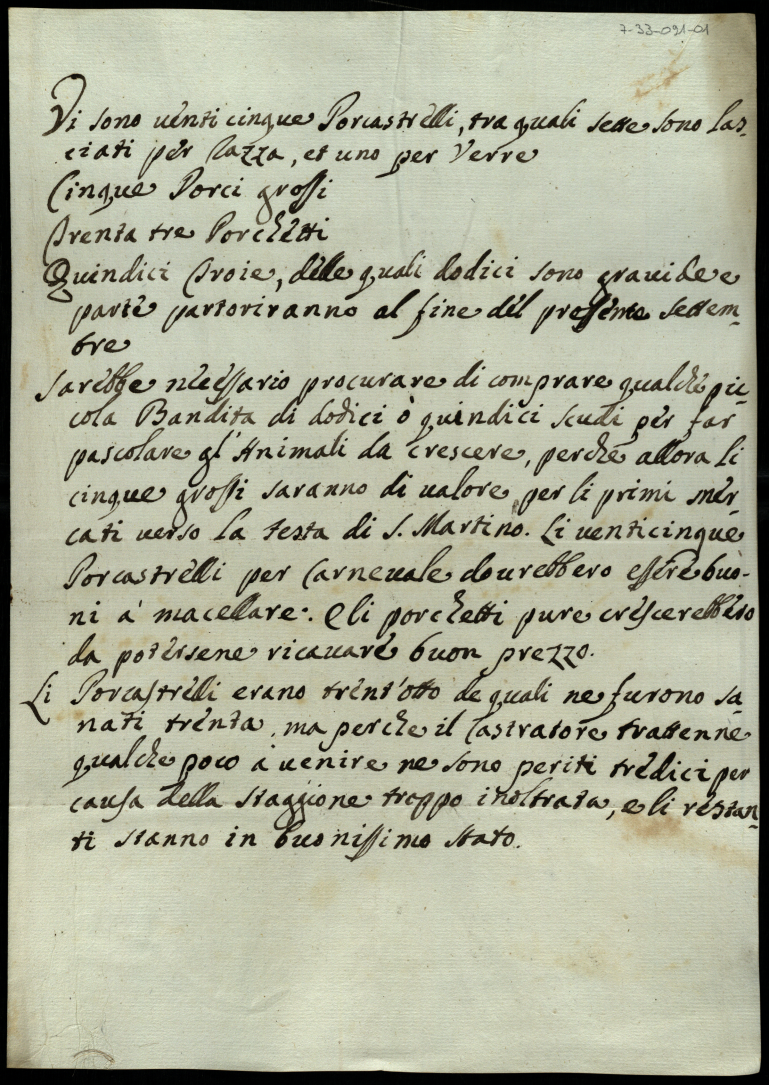 7-33-091-01
Vi sono venti cinque Porcastrelli, tra quali sette sono las=
ciati per razza, et uno per Verre
Cinque Porci grossi
Trenta tre Porchetti
Quindici Troie, delle quali dodici sono gravide e
parte partoriranno al fine del prossimo settem=
bre
Sarebbe necessario procurare di comprare qualche pic=
cola Bandita di dodici ò quindici scudi per far
pascolare gl'Animali da crescere, perche allora li
cinque grossi saranno di valore per li primi mer=
cati verso la festa di S. Martino. Li venticinque
Porcastrelli per Carnevale dourebbero essere buo=
ni à macellare. e li porchetti pure crescerebbero
da potersene ricavare buon prezzo.
Li Porcastrelli erano trent'otto de quali ne furono sa=
nati trenta, ma perche il Castratore trattenne
qualche poco à venire ne sono periti tredici per
causa della staggione troppo inoltrata, e li restan=
ti stanno in buonissimo stato.